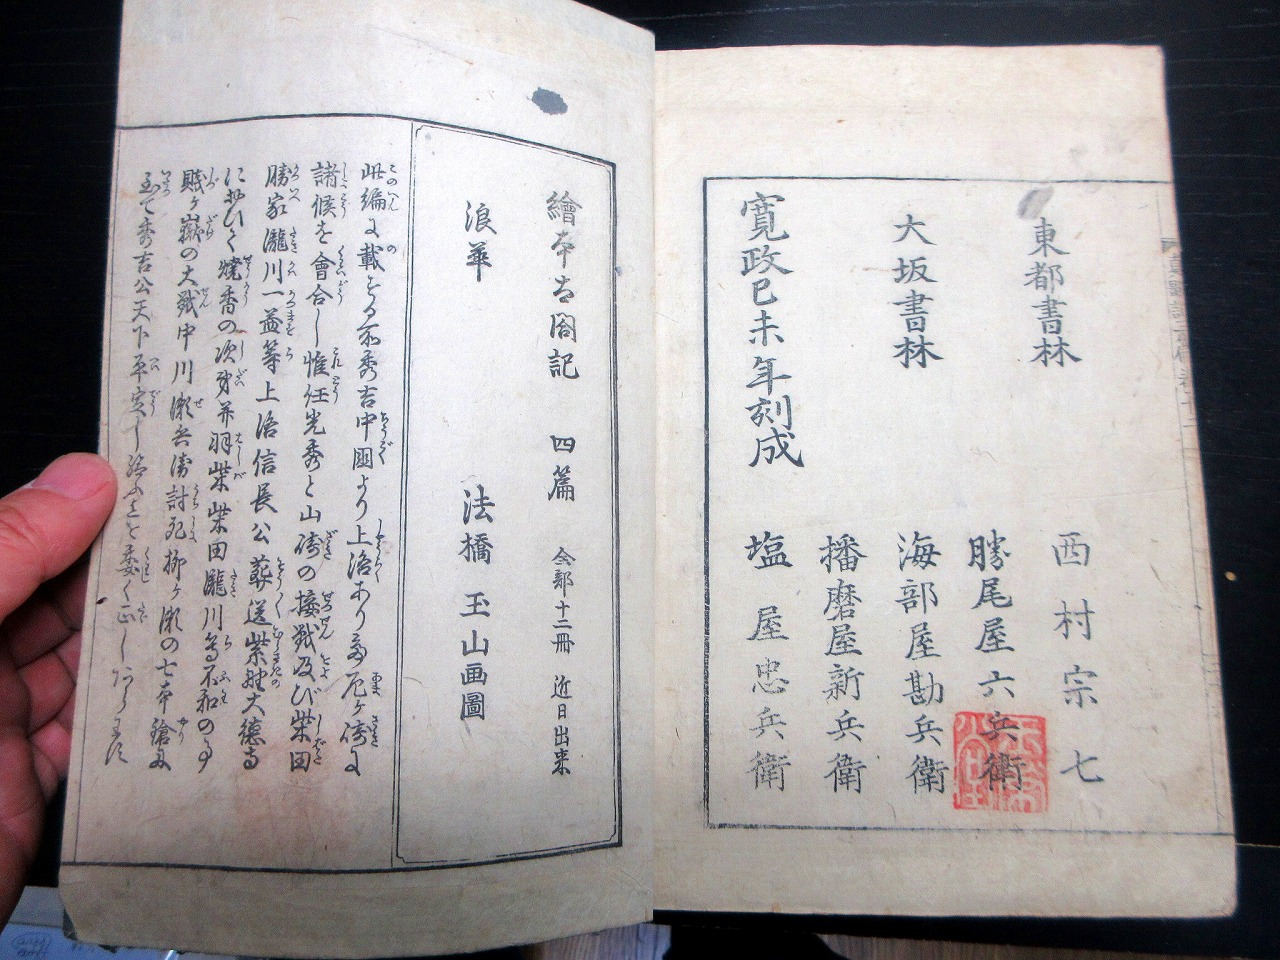 東都書林
西村宗七
大坂書林
勝尾屋六兵衛
海部屋勘兵衛
播磨屋新兵衛
塩屋忠兵衛
寛政己未年刻成
繪本太閤記 四篇 全部十二冊 近日出来
浪華 法橋玉山画圖
此編に載する所秀吉中國より上洛あり尼ヶ﨑に
諸候を會合し惟任光秀と山﨑の接戦及び柴田
勝家瀧川一益等上洛信長公葬送紫野大徳寺
において焼香の次第并羽柴柴田瀧川等不和の事
賤ヶ嶽の大戦中川瀬兵衛討死柳ヶ瀬の七本鎗
秀吉公天下平定し